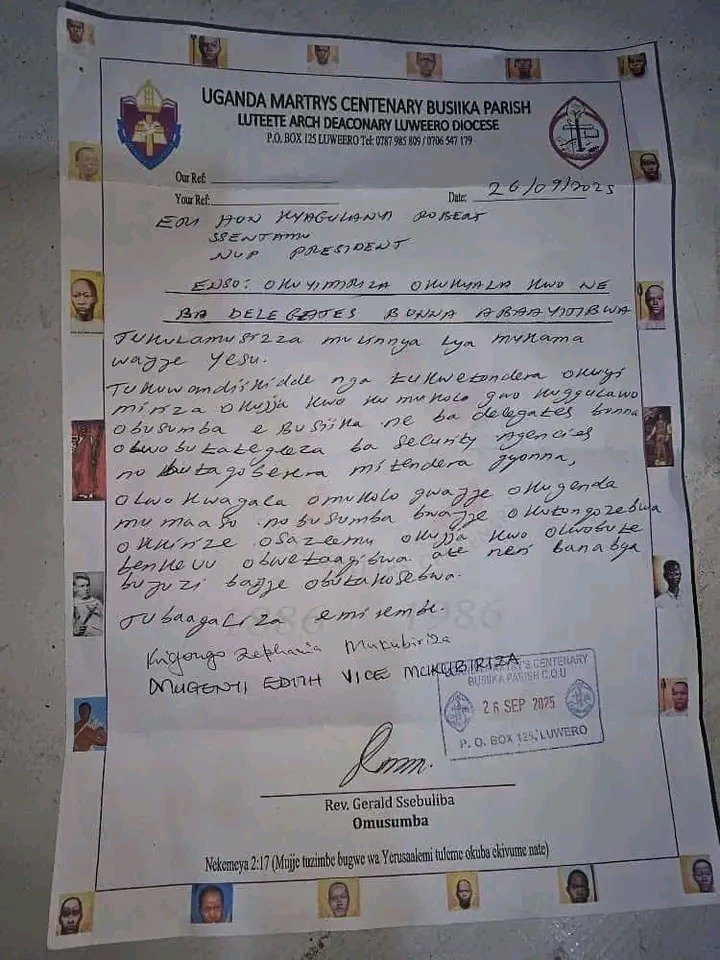 UGANDA MARTRYS CENTENARY BUSIIKA PARISH
LUTEETE ARCH DEACONARY LUWEERO DIOCESE
P.O. BOX 125 LUWEERO Tel: 0787 985 809 / 0706 547 179
Our Ref:
Your Ref: Date: 26/09/2025
ERI HON KYAGULANYI ROBERT
SSENTAMU
NUP PRESIDENT
ENSO: OKUYIMIRIZA OKUKYALA KWO NE
BA DELEGATES BONNA ABAAYITIBWA
Tukulamusizza mu linnya lya mukama
waffe Yesu.
Tukuwandiikidde nga tukwetondera okuyi
miriza okujja kwo ku mukolo gwo kuggulawo
obusumba e Busiika ne ba delegates bonna
olwobutategeeza ba Security Agencies
no butagoberera mitendera gyonna,
olwo kwagala omukolo gwaffe okugenda
mu maaso no busumba bwaffe okutongozebwa
okkirize osazeemu okujja kwo olwobute
benkevu obwetaagibwa ate neri banabya
bufuzi baffe obutakosebwa.
Tubaagaliza emirembe.
1886 1986
Kigongo Zephania Mukubiriza
MUGENYI EDITH VICE MUKUBIRIZA
MARTRY'S CENTENARY
BUSIIKA PARISH C.O.U
26 SEP 2025
P. O. BOX 125, LUWERO
Rev. Gerald Ssebuliba
Omusumba
Nekemeya 2:17 (Mujje tuzimbe bugwe wa Yerusaalemi tuleme okuba ekivume nate)